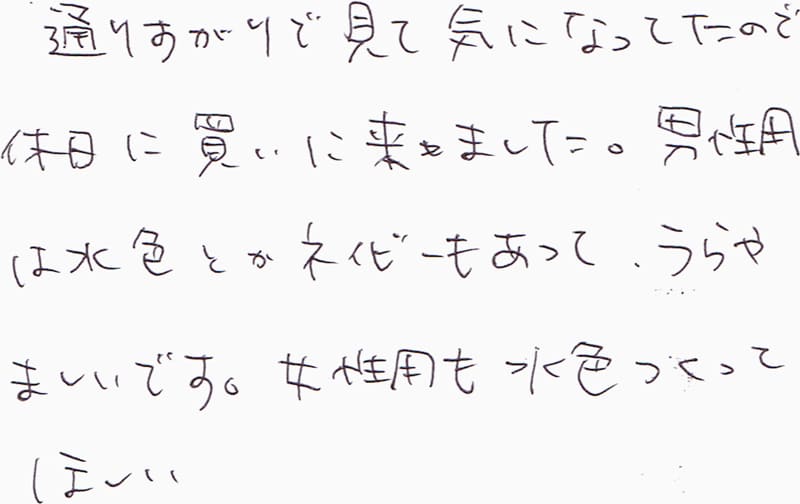 通りすがりで見て気になってたので
休日に買いに来ました。男性用
は水色とかネイビーもあって、うらや
ましいです。女性用も水色つくって
ほしい